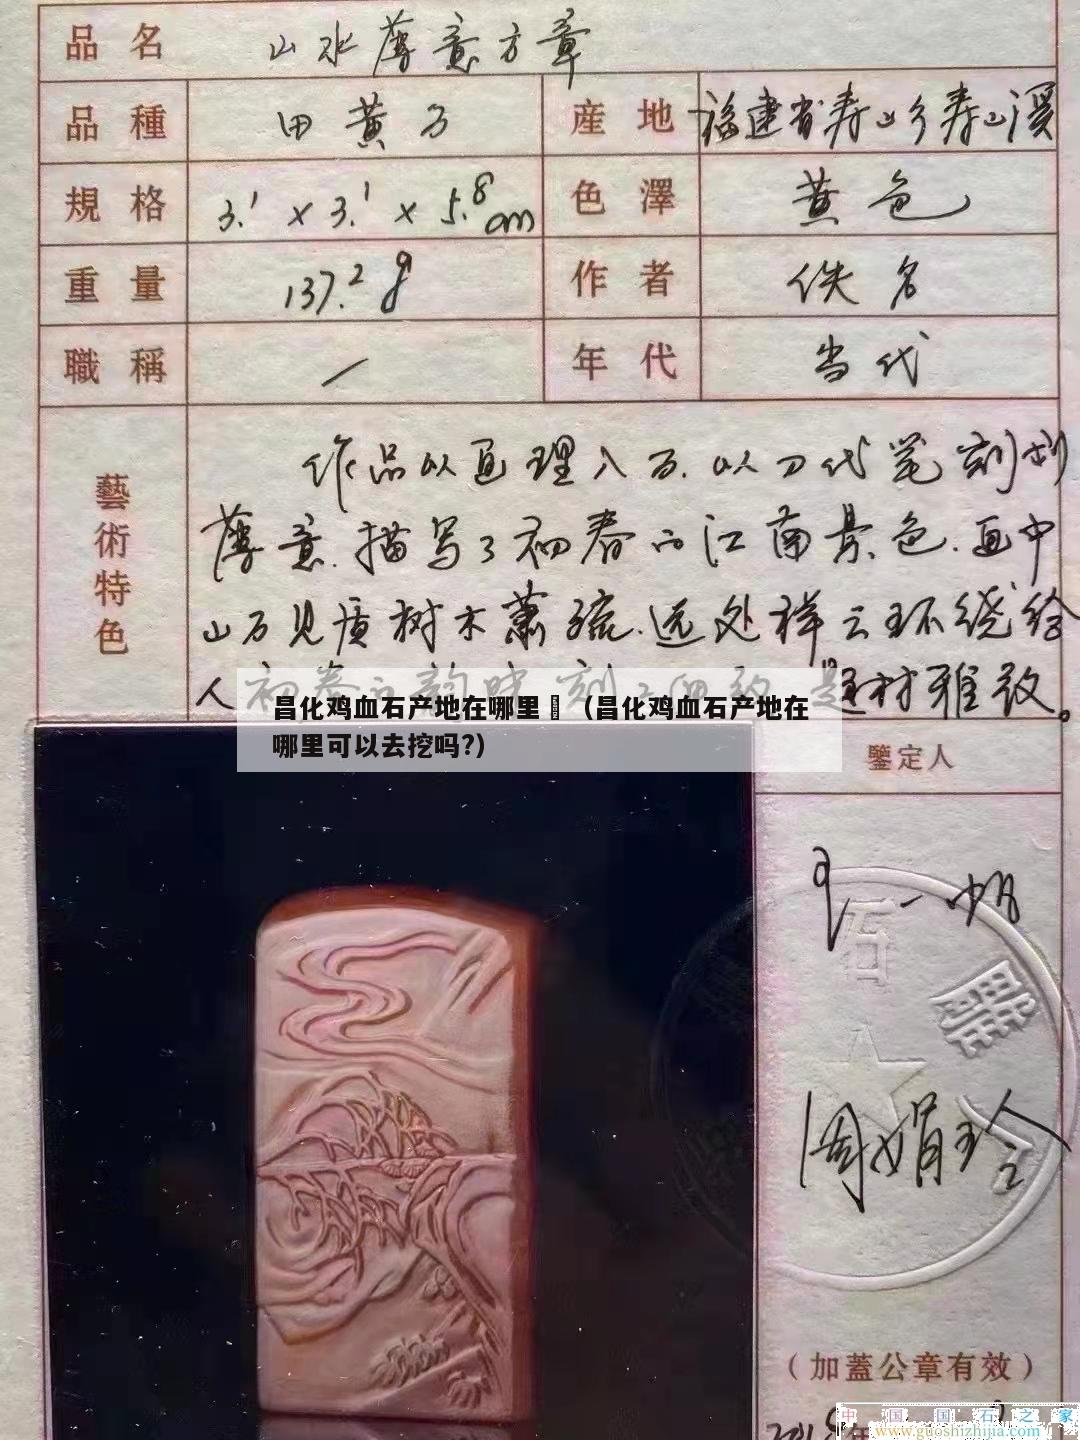 品名 山水薄意方章
品種 田黄石 産地 福建省寿山乡寿山溪
規格 3.1 x 3.1 x 5.8 cm 色澤 黄色
重量 137.2 g 作者 佚名
職稱 — 年代 当代
藝術特色
作品以画理入石.以刀代笔刻划
薄意.描写了初春的江南景色.画中
山石见质树木萧疏.远处祥云环绕给
人初春之韵味 刻工细致 题材雅致。
昌化鸡血石产地在哪里 (昌化鸡血石产地在
哪里可以去挖吗?)
鑒定人
石
雕
周娟玲
(加蓋公章有效)
年
中国国石之家
www.guoshizhijia.com